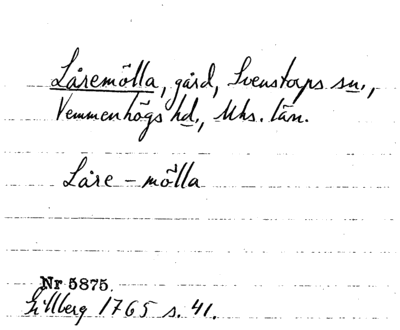 Låremölla, gård, Svenstorps sn.,
Vemmenhögs hd., Mhs. län.
Låre - mölla
Nr 5875.
Gillberg 1765 s. 41.